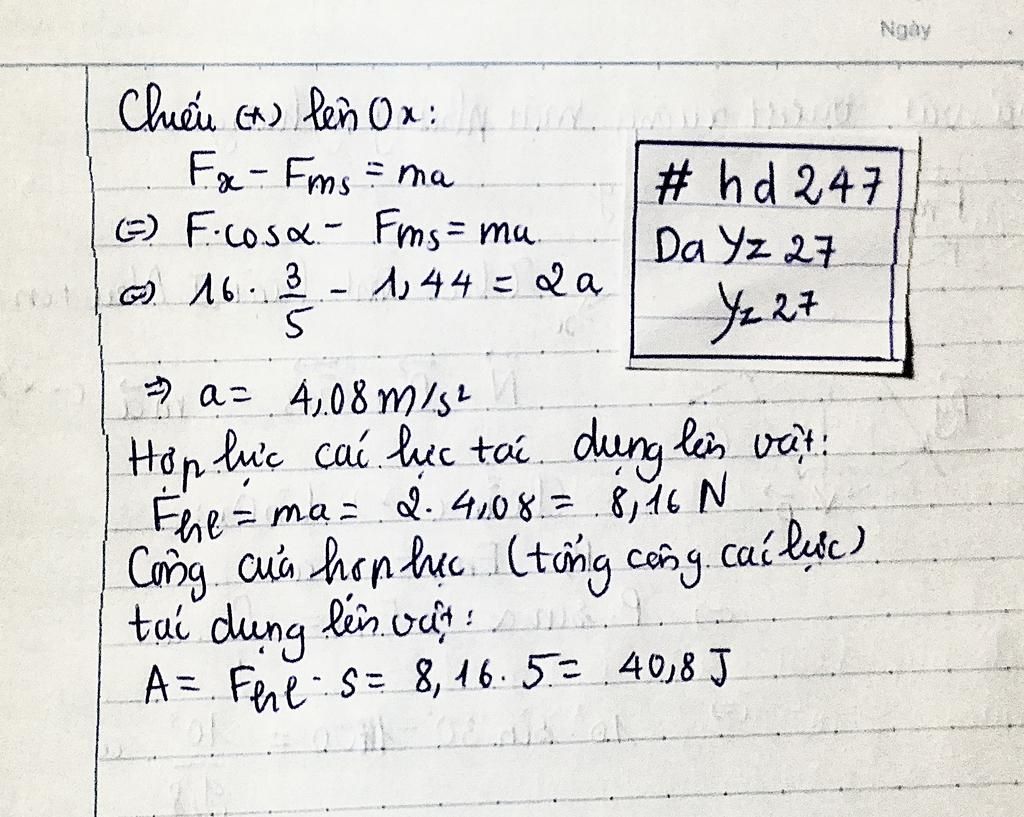 Ngày
Chiếu (*) lên Ox:
Fx - Fms = ma
(=) F.cosα - Fms = ma
(=) 16. 3/5 - 1,44 = 2a
# hd 247
Da Yz 27
Yz 27
=> a = 4,08 m/s²
Hợp lực các lực tác dụng lên vật:
Fhl = ma = 2. 4,08 = 8,16 N
Công của hợp lực (tổng công các lực)
tác dụng lên vật:
A = Fhl . s = 8,16 . 5 = 40,8 J